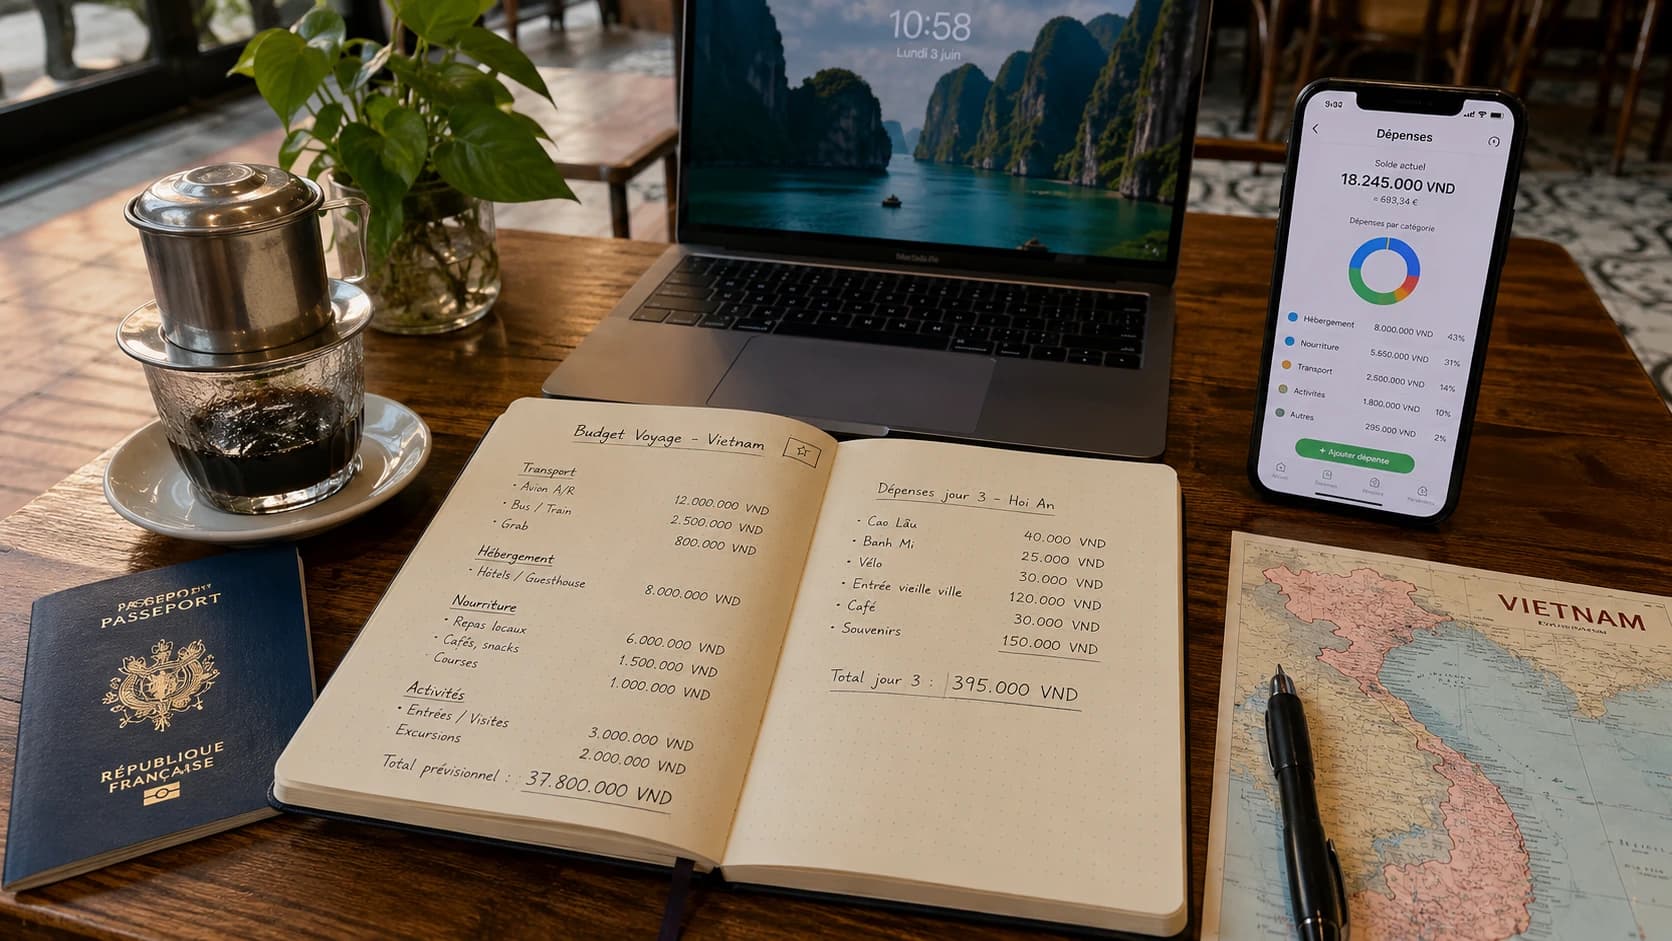 10:58
Lundi 3 juin
Dépenses
Solde actuel
18.245.000 VND
≈ 693,34 €
Dépenses par catégorie
Hébergement 8.000.000 VND 43%
Nourriture 5.650.000 VND 31%
Transport 2.500.000 VND 14%
Activités 1.800.000 VND 10%
Autres 295.000 VND 2%
+ Ajouter dépense
Budget Voyage - Vietnam
Transport
• Avion A/R 12.000.000 VND
• Bus / Train 2.500.000 VND
• Grab 800.000 VND
Hébergement
• Hôtels / Guesthouse 8.000.000 VND
Nourriture
• Repas locaux 6.000.000 VND
• Cafés, snacks 1.500.000 VND
Courses 1.000.000 VND
Activités
• Entrées / Visites 3.000.000 VND
Excursions 2.000.000 VND
Total prévisionnel : 37.800.000 VND
Dépenses jour 3 - Hoi An
• Cao Lâu 40.000 VND
• Banh Mi 25.000 VND
• Vélo 30.000 VND
• Entrée vieille ville 120.000 VND
• Café 30.000 VND
• Souvenirs 150.000 VND
Total jour 3 : 395.000 VND
PASSEPORT
RÉPUBLIQUE
FRANÇAISE
VIETNAM